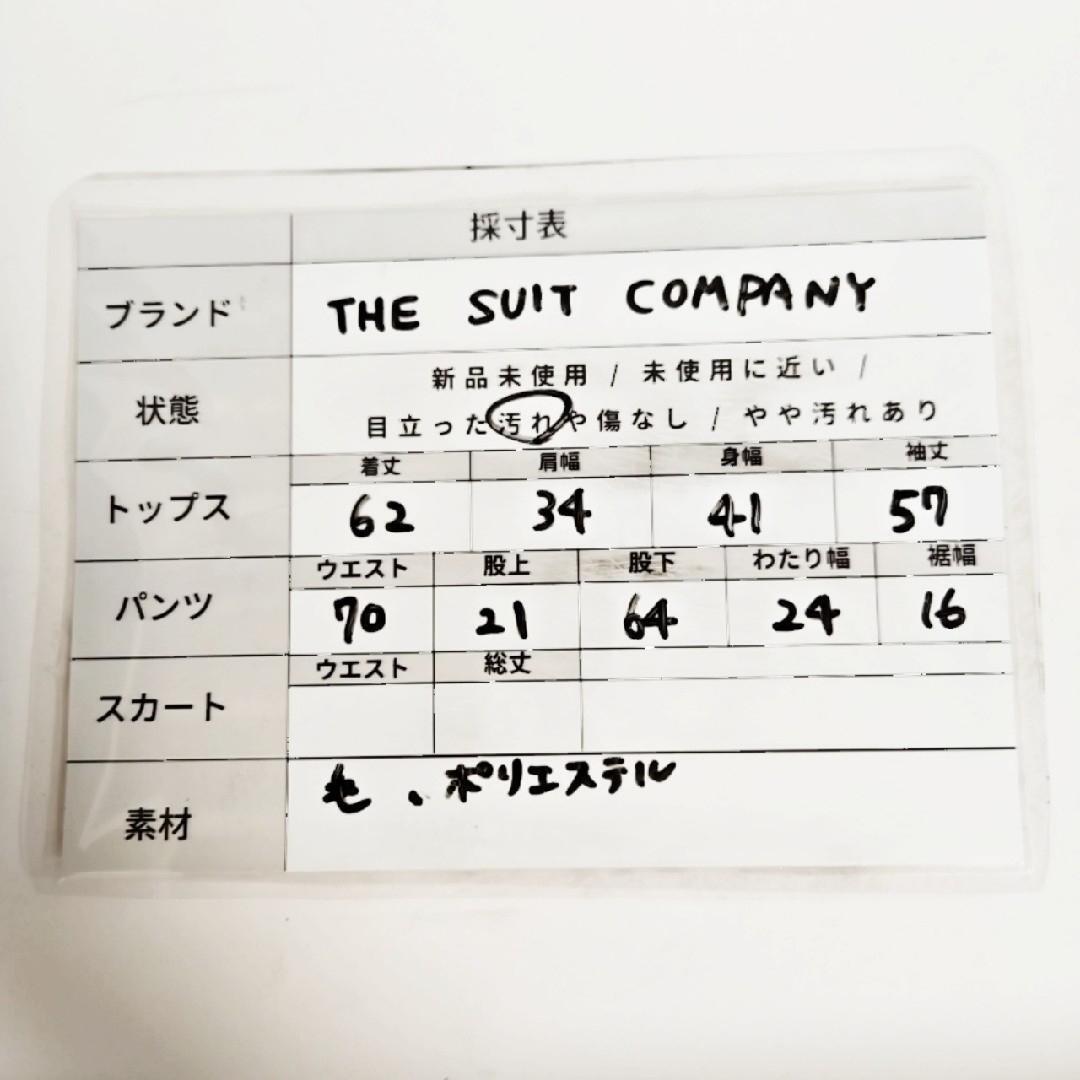 採寸表
ブランド THE SUIT COMPANY
状態 新品未使用 / 未使用に近い /
目立った汚れや傷なし / やや汚れあり
着丈 肩幅 身幅 袖丈
トップス 62 34 41 57
ウエスト 股上 股下 わたり幅 裾幅
パンツ 70 21 64 24 16
ウエスト 総丈
スカート
素材 毛、ポリエステル